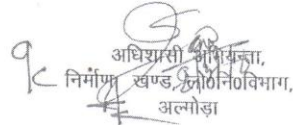 अधिशासी अभियन्ता,
निर्माण खण्ड, लो०नि०विभाग,
अल्मोड़ा